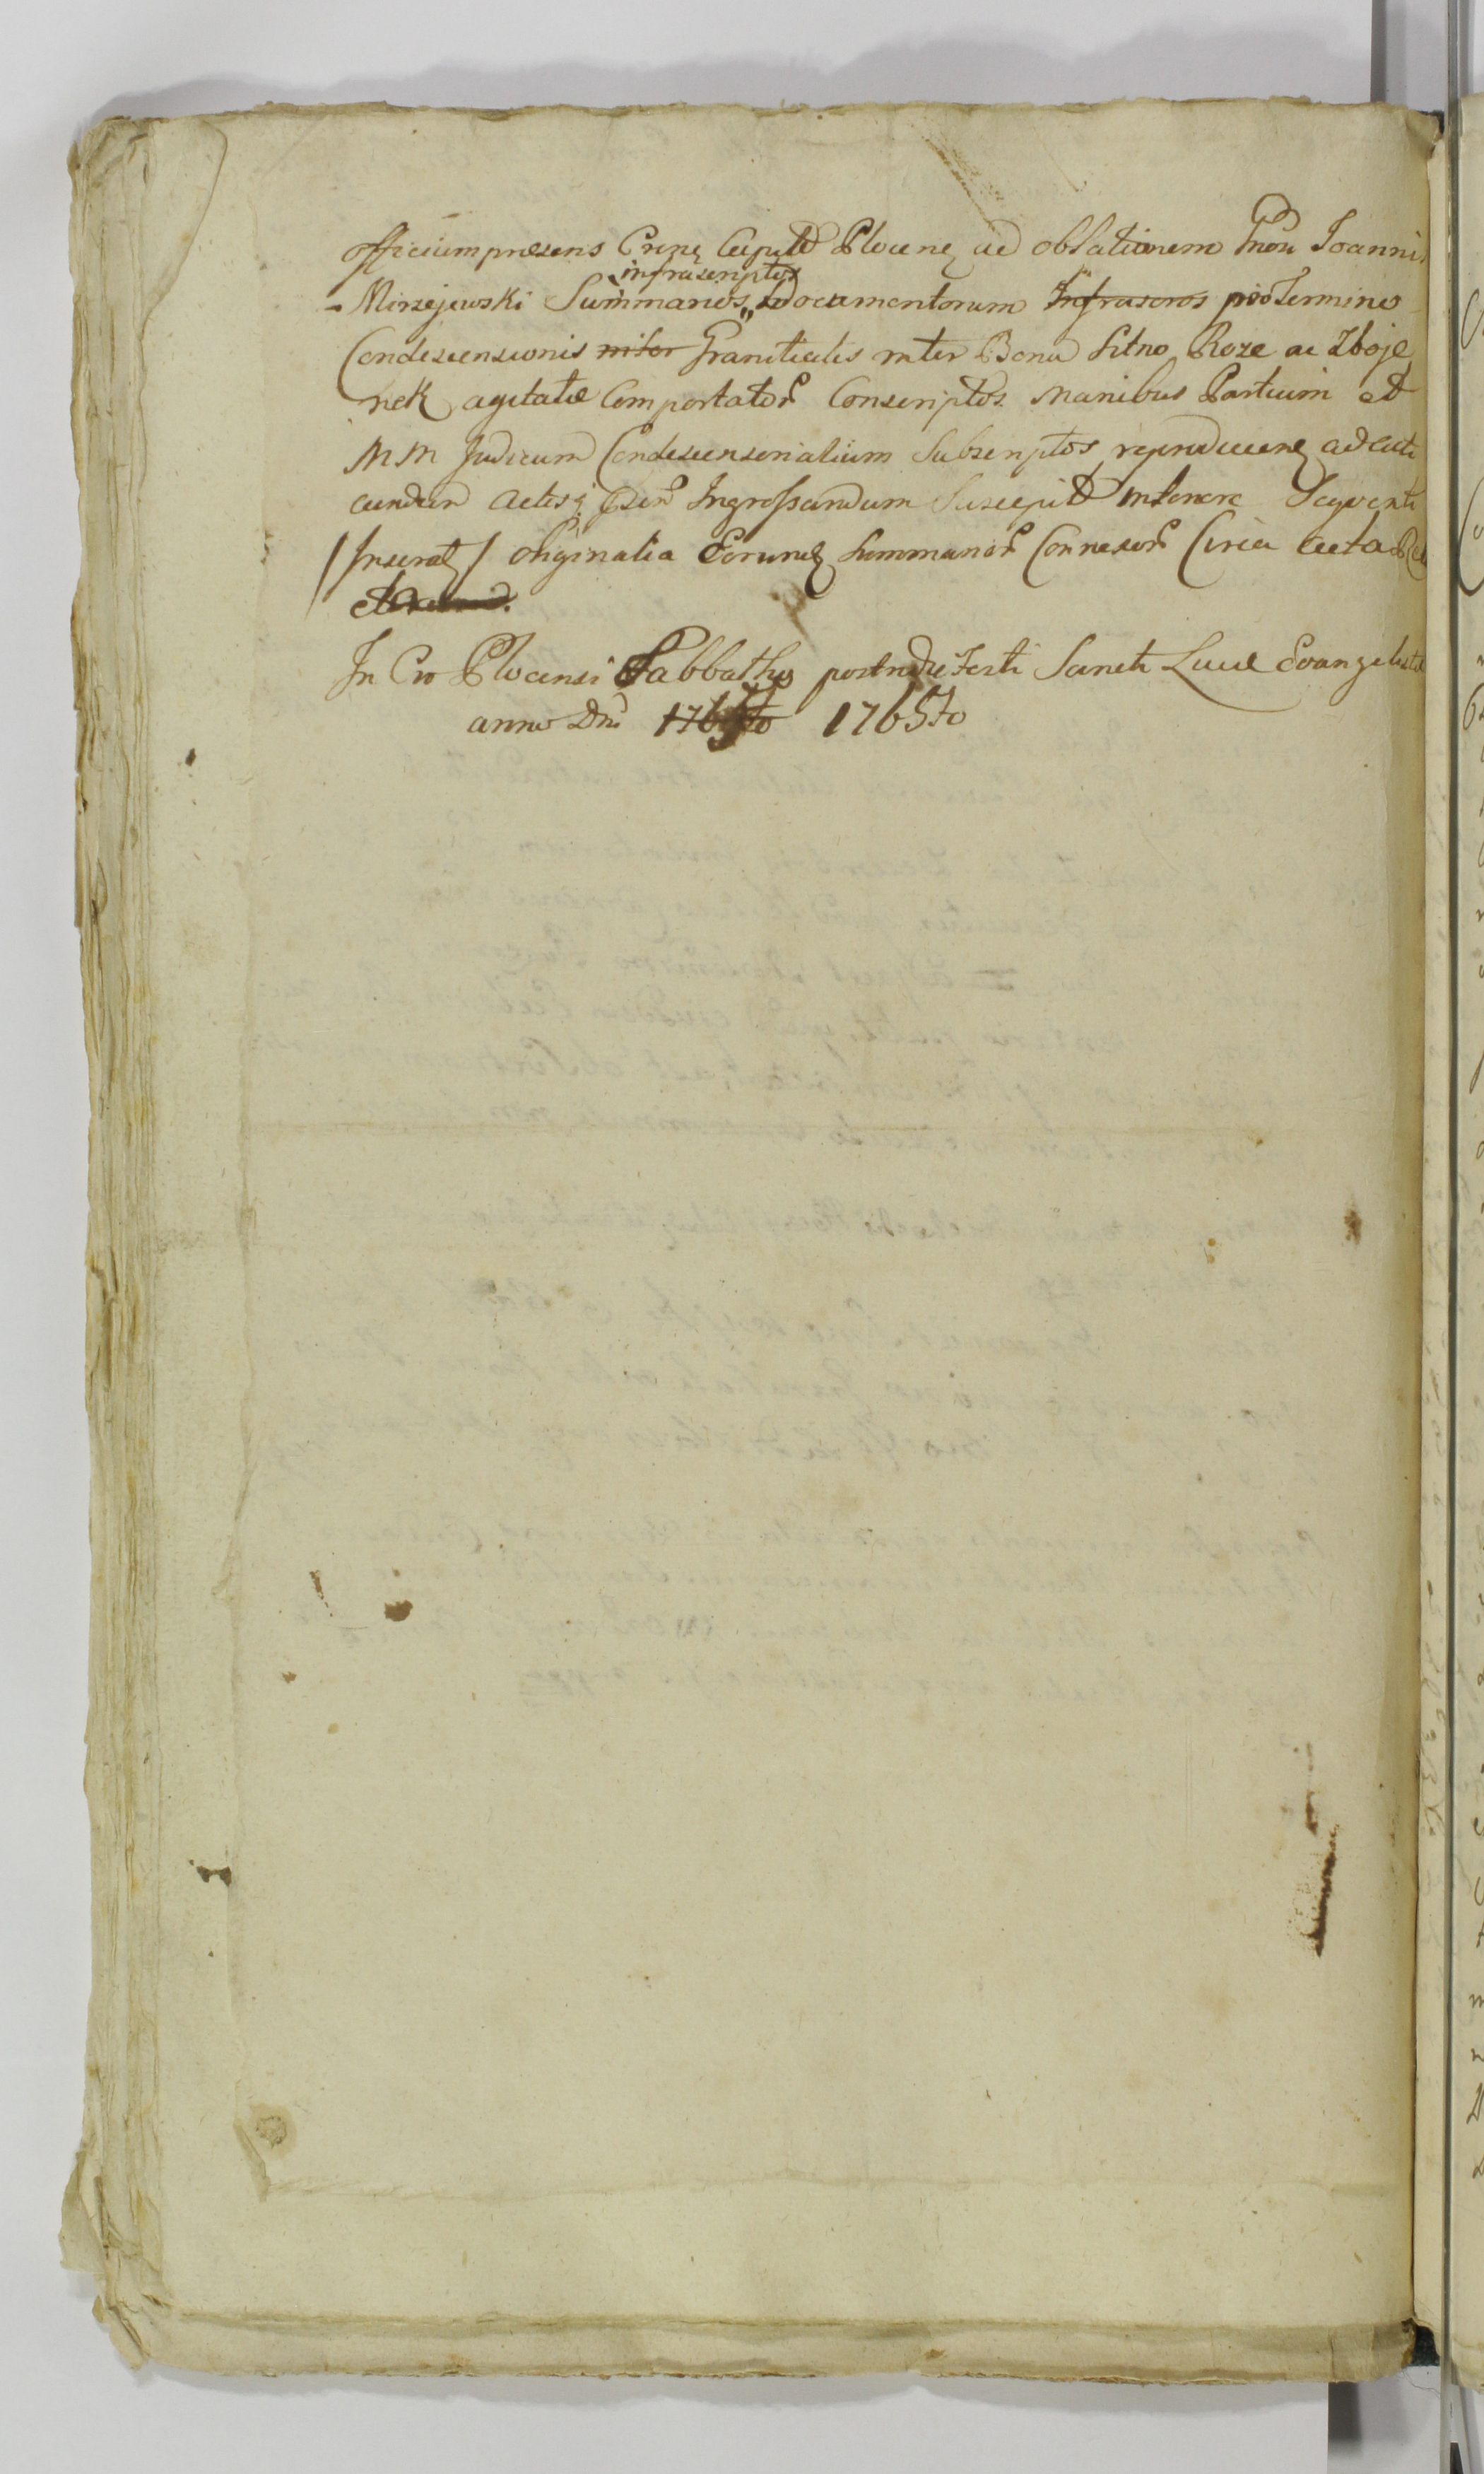 officium præsens Crense Capitle Plocense ad oblationem Gnosi Joannis
infrascriptos
Mirzejewski Summarios Documentorum Infrascros pro Termino
Condescensionis inter Granitialis inter Bona Sitno Roze ac Zboje
nek agitatæ Comportator Conscriptos Manibus Partium et
M M Judicum Condescensorialium Subscriptos reproducen ad acti
candum Actisq Ingrossandum Suscepit in tenore Sequenti
/Inserat/ Originalia Eorund Summarior Connexor Circa Acta
et
In Cro Plocensi Sabbatho postridie Festi Sancti Lucæ Evangelistæ
anno Dni 1765to 1765to